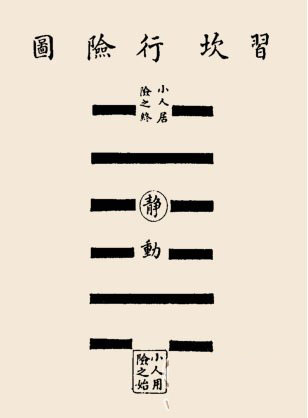 習坎行險圖
小人居
險之終
靜
動
小人用
險之始